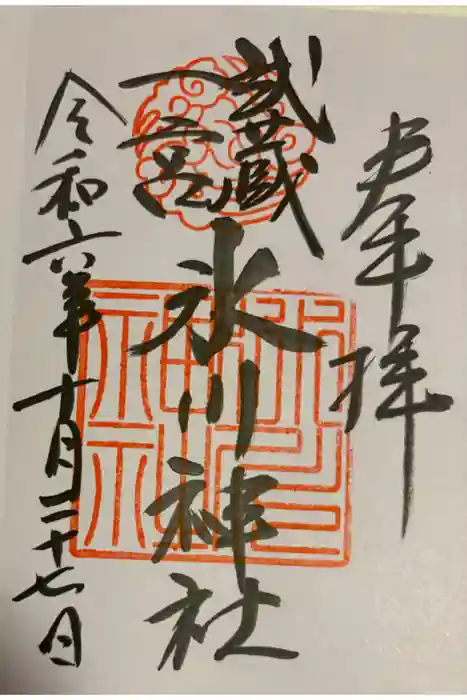 奉拝
武蔵
一宮
氷川神社
令和六年十月二十七日
氷川神社